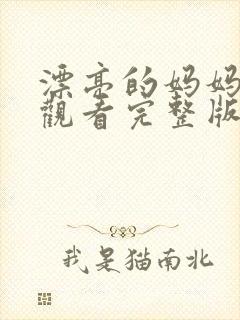 漂亮的妈妈
觀看完整版
我是猫南北